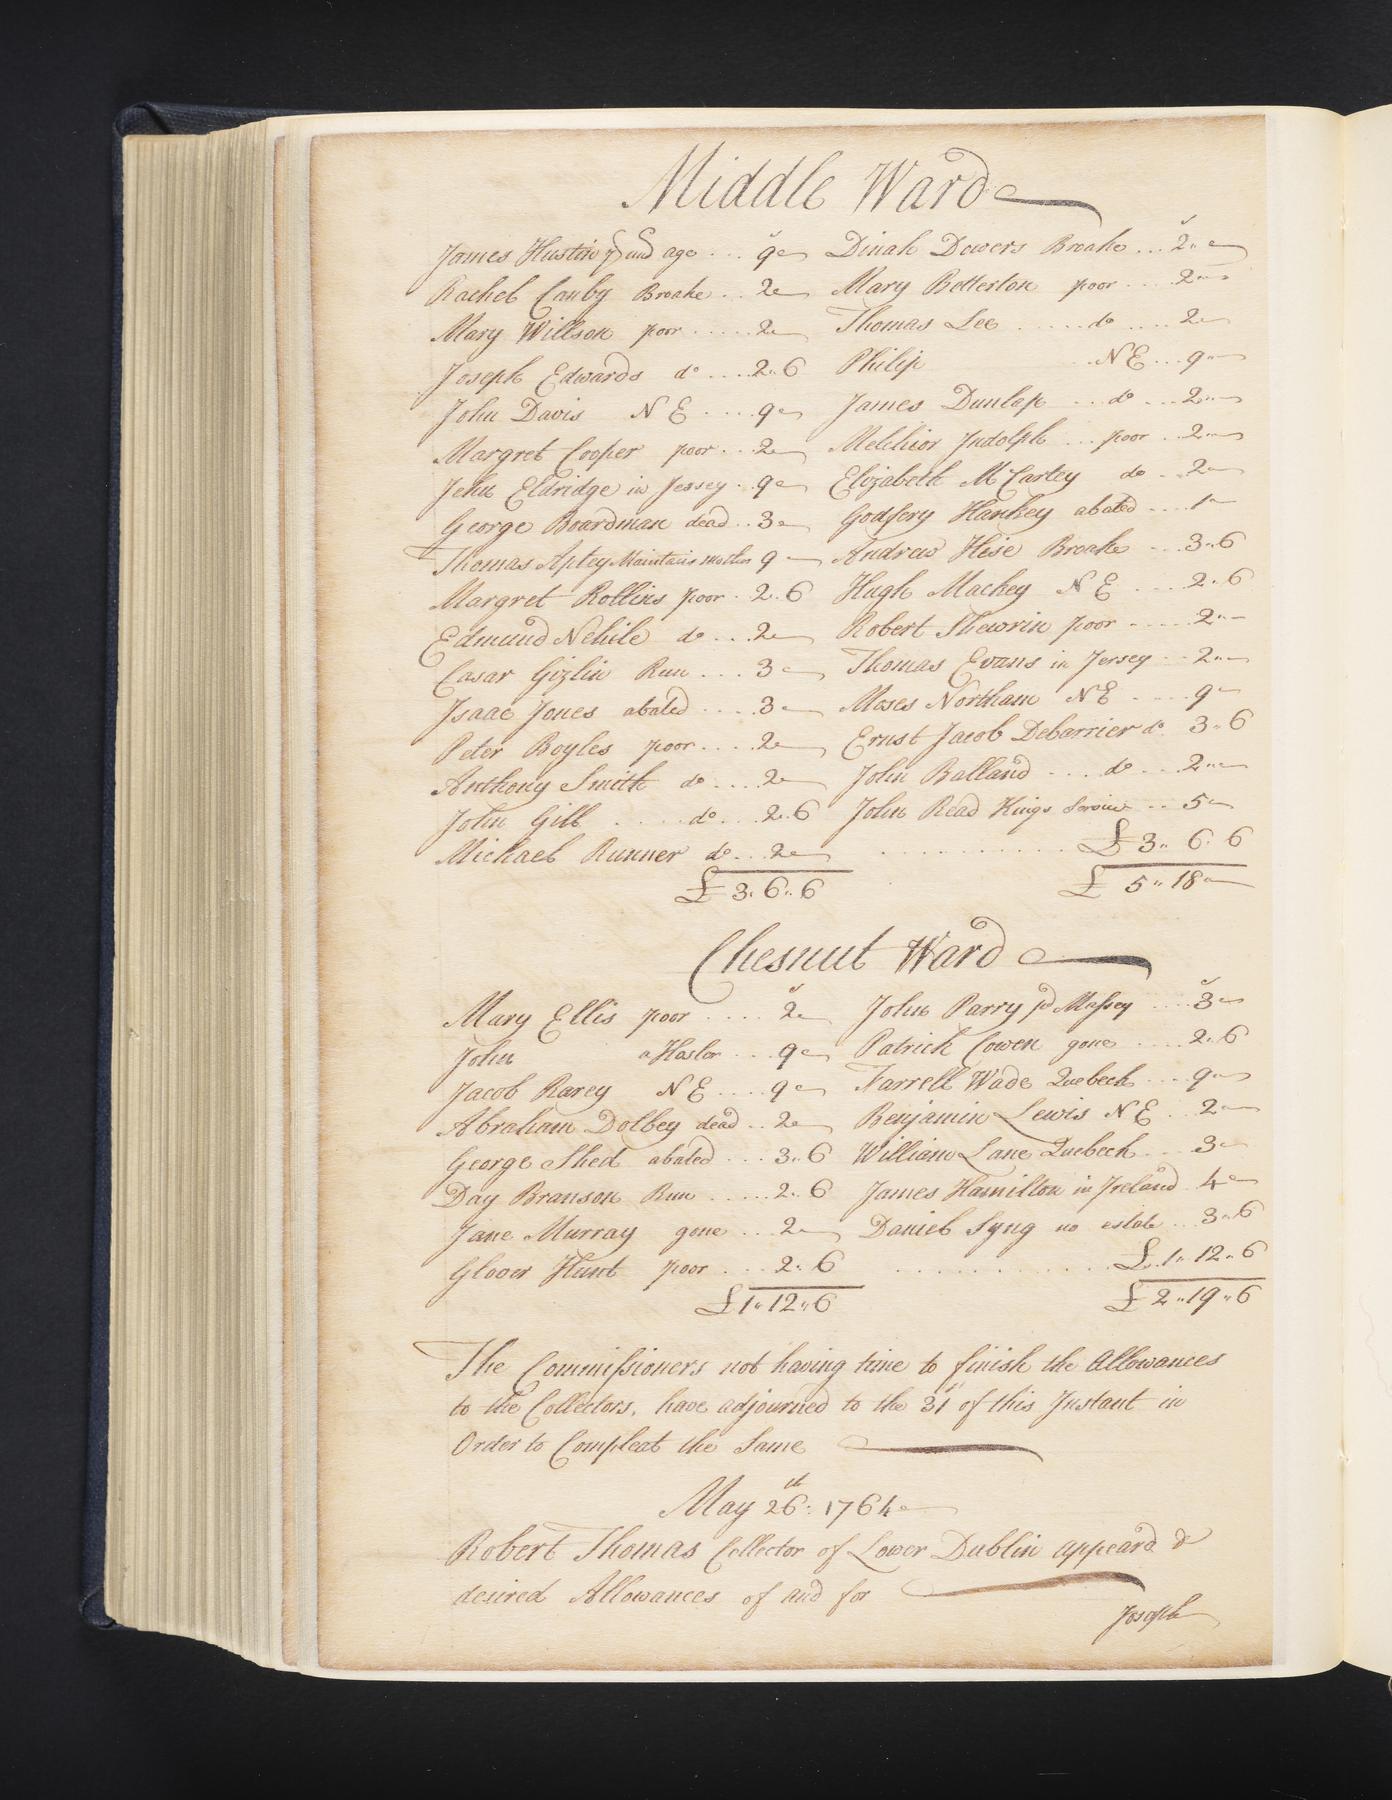 Middle Ward
James Hustin und age ... 9 "
Rachel Canby Broake .. 2 "
Mary Willson poor ..... 2 "
Joseph Edwards do .... 2 " 6
John Davis N E .... 9 "
Margret Cooper poor .. 2 "
John Eldridge in Jersey . 9 "
George Boardman dead .. 3 "
Thomas Apley Maintains Mother 9
Margret Rollins poor . 2 " 6
Edmund Nehile do ... 2 "
Casar Gizlin Run ... 3 "
Isaac Jones abated .... 3 "
Peter Boyles poor .... 2 "
Anthony Smith do .... 2 "
John Gill ..... do ... 2 " 6
Michael Runner do ... 2 "
£ 3 " 6 " 6
Dinah Dowers Broake ... 2 "
Mary Betterton poor .... 2 "
Thomas Lee ..... do .... 2 "
Philip N E ... 9 "
James Dunlap ... do ... 2 "
Melchior Judolph ... poor .. 2 "
Elizabeth McCartey do .. 2 "
Godfery Hankey abated .... 1 "
Andrew Hise Broake ... 3 " 6
Hugh Mackey N E .... 2 " 6
Robert Shewrin poor ..... 2 "
Thomas Evans in Jersey ... 2 "
Moses Northam N E .... 9 "
Ernst Jacob Debarrier do . 3 " 6
John Balland .... do ... 2 "
John Read Kings Service ... 5 "
£ 3 " 6 " 6
£ 5 " 18 "
Chesnut Ward
Mary Ellis poor .... 2 "
John a Hosler ... 9 "
Jacob Rarey N E .... 9 "
Abraham Dolbey dead .. 2 "
George Shed abated ... 3 " 6
Day Branson Run ..... 2 " 6
Jane Murray gone ... 2 "
Glover Hunt poor ... 2 " 6
£ 1 " 12 " 6
John Parry pd Massey .... 3 "
Patrick Cowen gone .... 2 " 6
Farrell Wade Quebeck ... 9 "
Benjamin Lewis N E .. 2 "
William Lane Quebeck ... 3 "
James Hamilton in Ireland . 4 "
Daniel Syng no estate ... 3 " 6
£ 1 " 12 " 6
£ 2 " 19 " 6
The Commissioners not having time to finish the Allowances
to the Collectors, have adjourned to the 31st of this Instant in
Order to Compleat the Same
May 26th: 1764
Robert Thomas Collector of Lower Dublin appeard &
desired Allowances of and for
Joseph